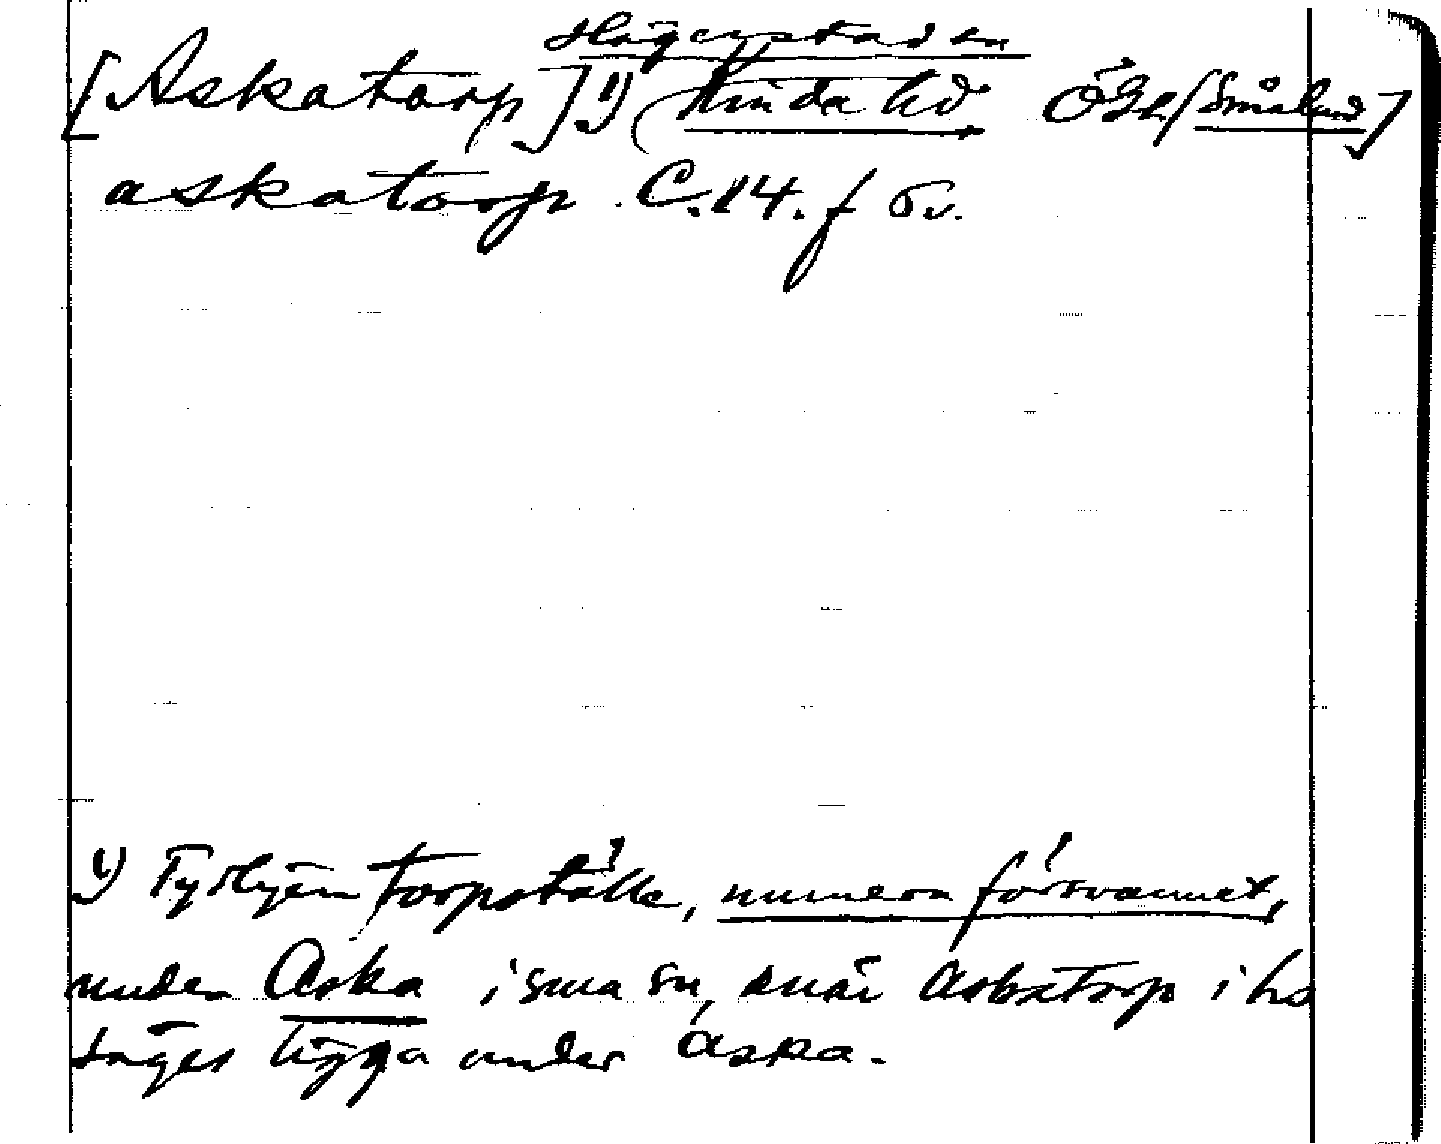 Hägerstad sn
[Askatorp] 1) Kinda hd Ögl [Småland]
askatorp C.14. f 6v.
1) Tydligen torpställe, numera försvunnet,
under Aska i sma sn, enär Askatorp i hs
säges ligga under Aska.